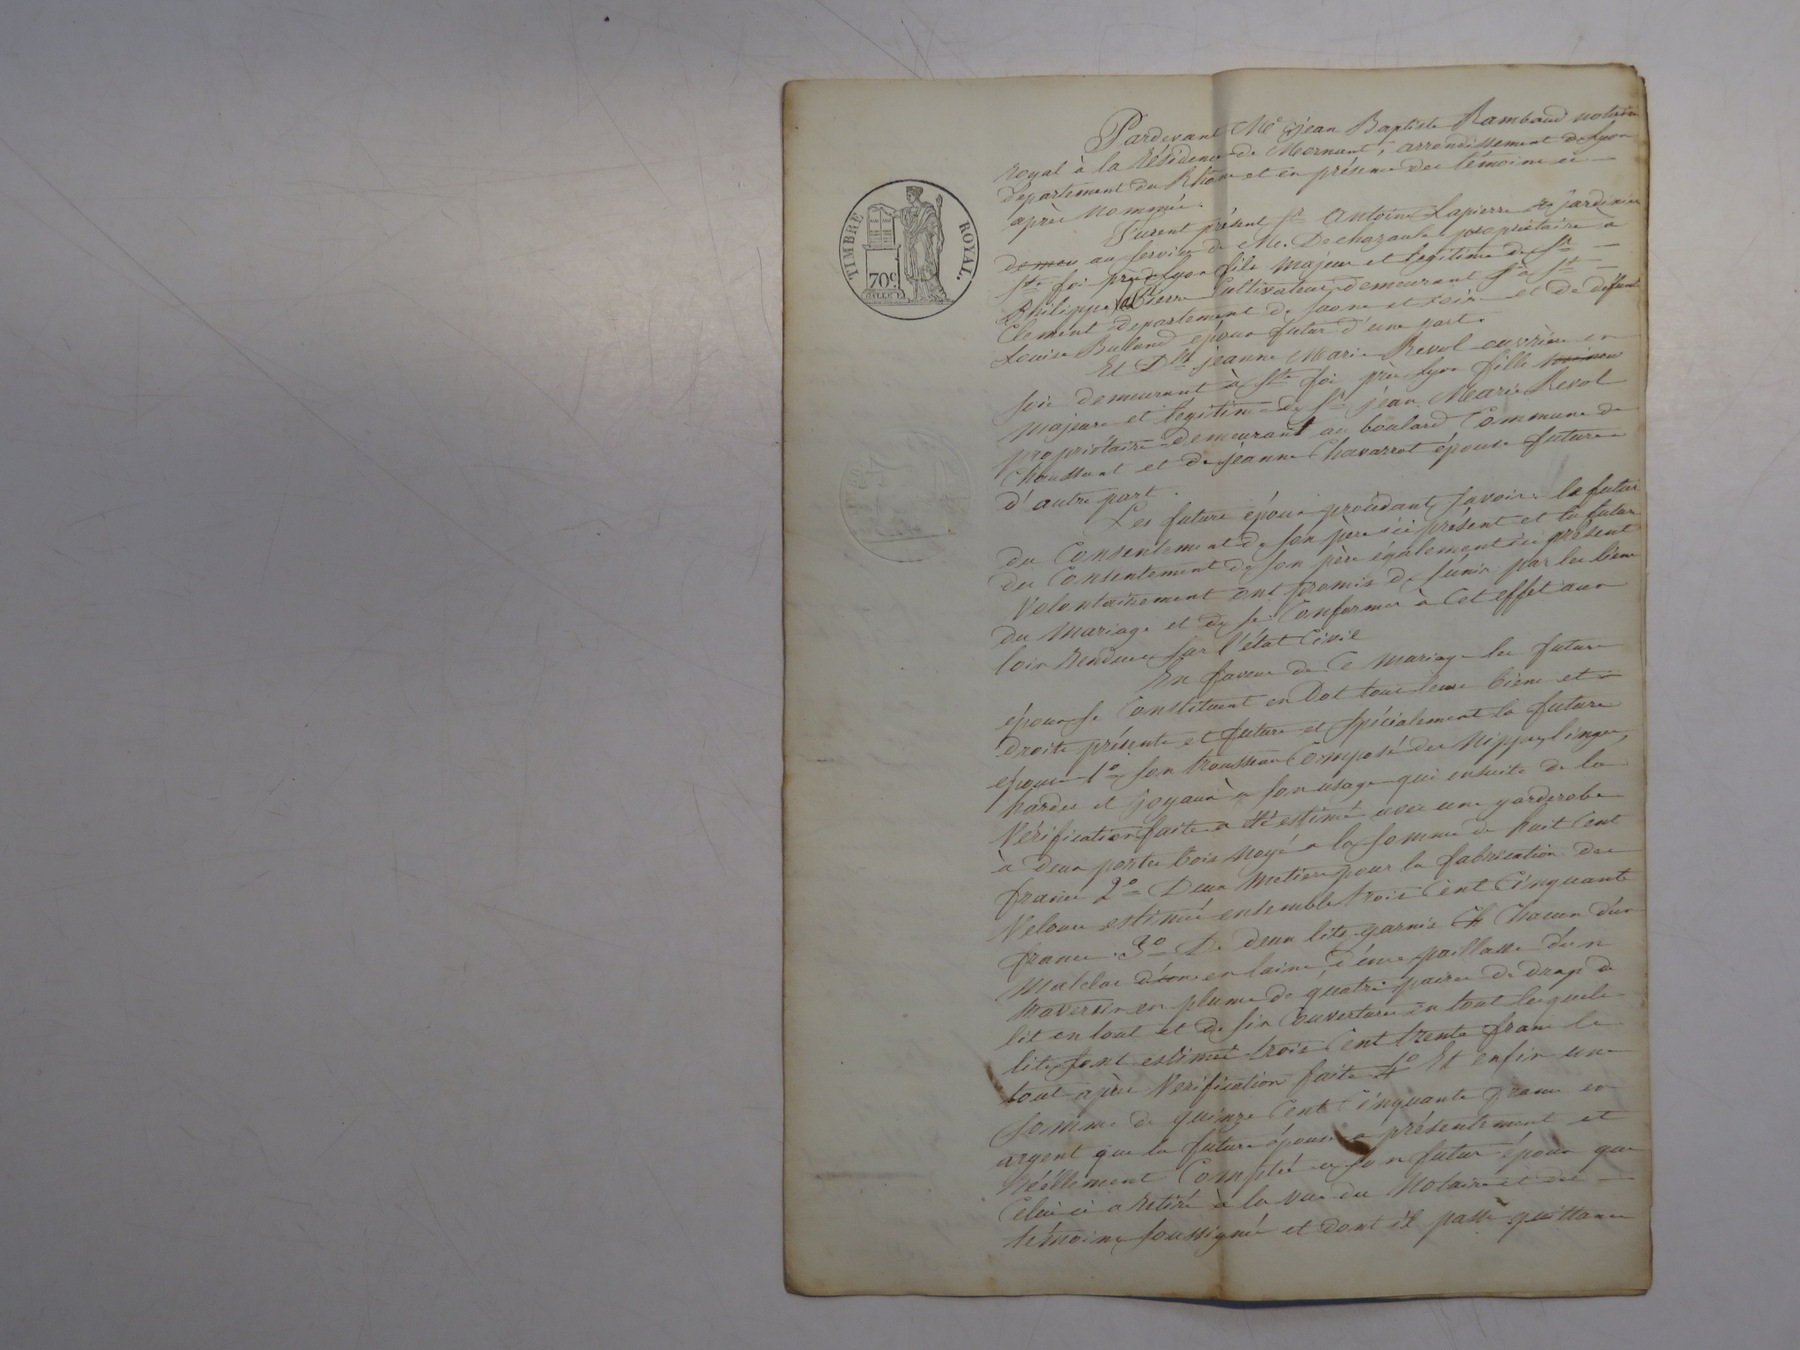 TIMBRE ROYAL.
70c
Pardevant Me jean Baptiste Rambaud notaire
royal à la Résidence de Mornant, arrondissement de Lyon
département du Rhône et en présence des témoins ci
après nommés.
furent présent sr Antoine Lapierre jardinier
au service de Mr. Dechazaule propriétaire a
Ste foi près Lyon fils majeur et légitime de Sr
Philippe Lapierre Cultivateur demeurant à St
Clement département de saone et Loire et de défunt
Louise Bulland époux futur d'une part.
Et Dlle jeanne Marie Revol ouvrière en
soie demeurant à Ste foi près Lyon fille
majeure et légitime de Sr jean Marie Revol
propriétaire demeurant au boulard Commune de
Chaussant et de jeanne Chavarrot épouse future
d'autre part.
Les futurs époux procédant, savoir: le futur
du Consentement de son père ici présent et la future
du Consentement de son père également ici présent
Volontairement ont promis de s'unir par les liens
du Mariage et de se Conformer à Cet effet aux
loix rendues sur l'état Civil
En faveur de Ce mariage les futurs
époux se Constituent en Dot tous leurs biens et
droits présents et futurs et spécialement la future
épouse 1o son trousseau Composé des Nippes, linges,
hardes et joyaux a son usage qui ensuite de la
Vérification faite a été estimé avec une garderobe
à deux portes bois Noyé a la somme de huit Cent
francs 2o Deux Metiers pour la fabrication des
Velours estimés ensemble trois Cent Cinquante
francs. 3o De deux lits garnis Chacun d'un
Matelas en laine, d'une paillasse d'un
traversin en plume de quatre paires de drap de
lit en tout et de six Couvertures en tout lesquels
lits sont estimés trois Cent trente francs le
tout après Vérification faite 4o Et enfin une
somme de quinze Cent Cinquante francs en
argent que la future épouse a présentement et
Réellement Comptée a son futur époux que
Celui ci a Retiré à la vue du Notaire et des
témoins soussignés et dont il passe quittance